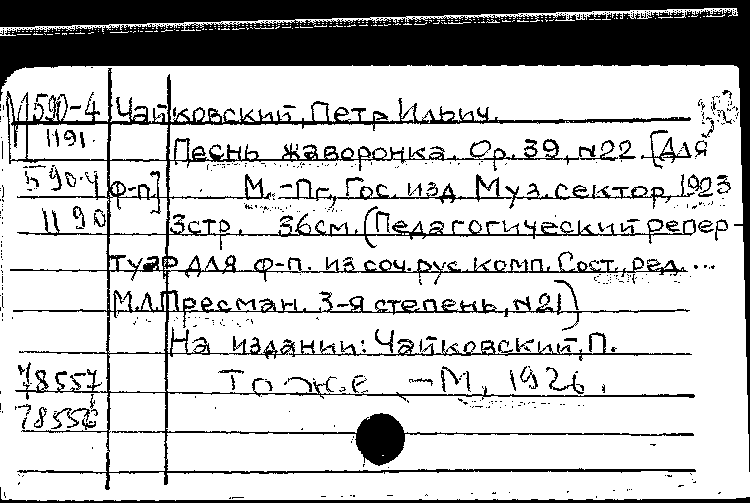 М590-4 Чайковский, Петр Ильич.
1191 Песнь жаворонка. Op. 39, N22. [Для
590-4 ф-п.] М.-Пг., Гос. изд. Муз. сектор, 1923
1190 3стр. 36см. (Педагогический репер-
туар для ф-п. из соч. рус. комп. Сост., ред. ...
М.Л. Пресман. 3-я степень, N21)
На издании: Чайковский, П.
78557 То же – М, 1926.
78556